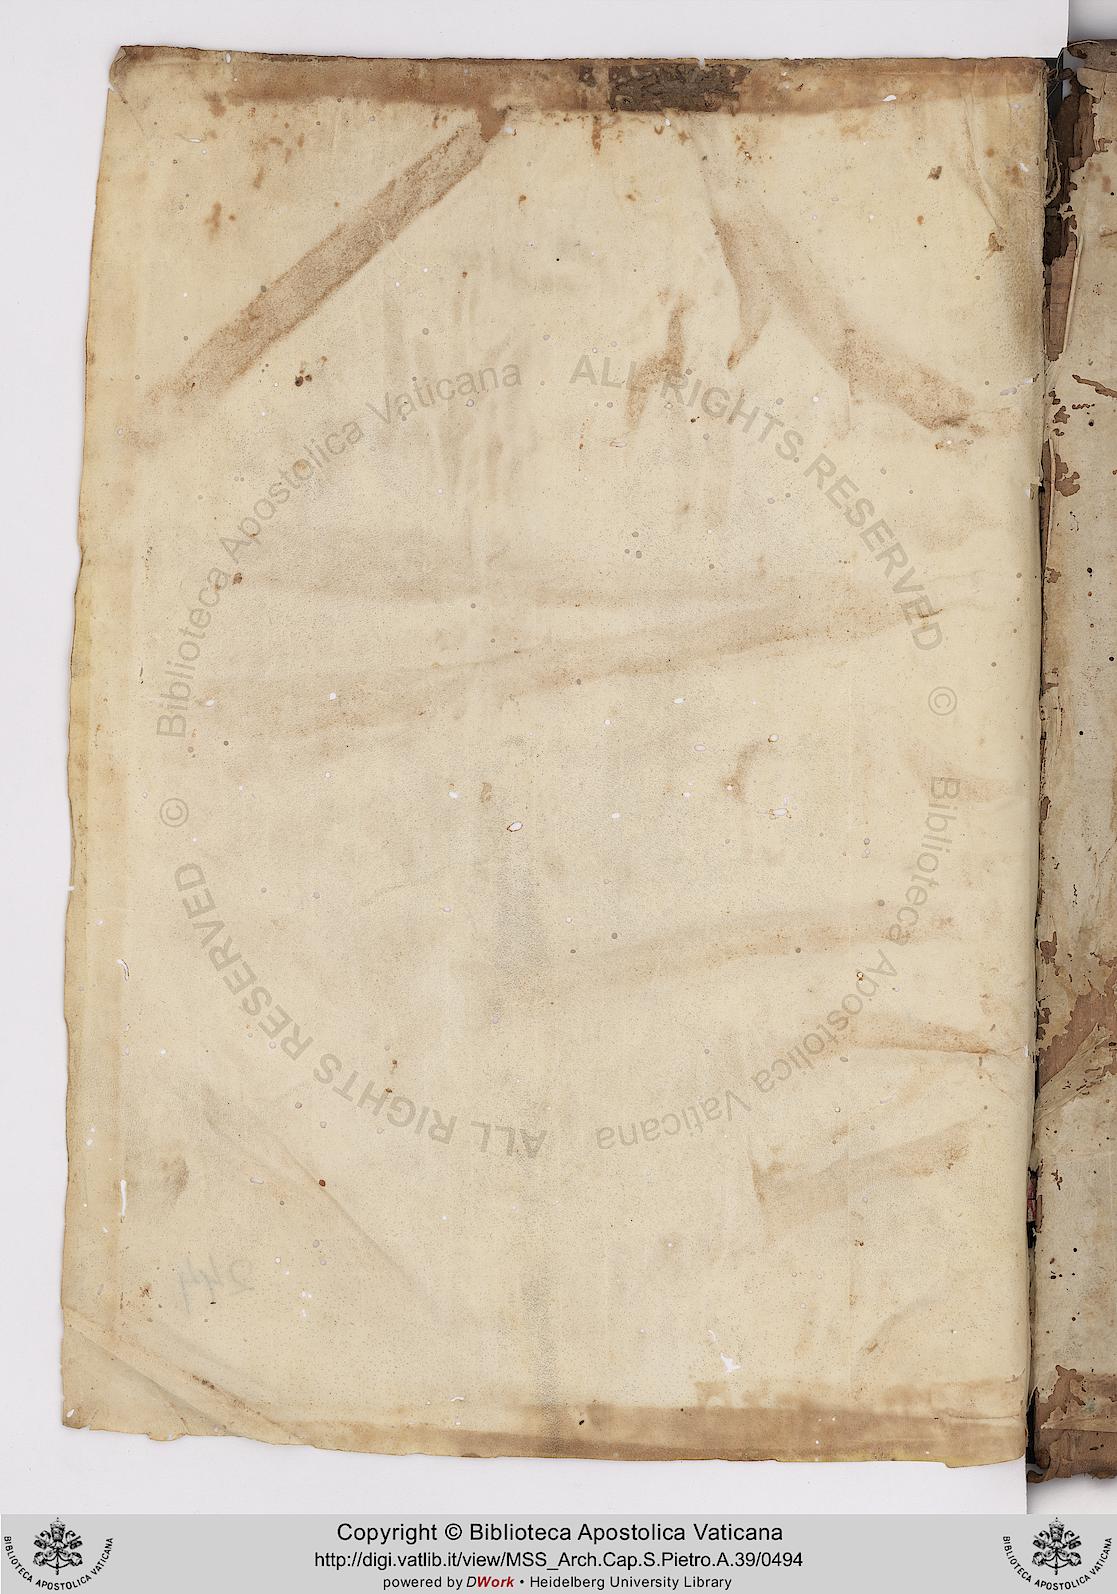 Biblioteca Apostolica Vaticana
ALL RIGHTS RESERVED
©
Biblioteca Apostolica Vaticana
ALL RIGHTS RESERVED
©
244
Copyright © Biblioteca Apostolica Vaticana
http://digi.vatlib.it/view/MSS_Arch.Cap.S.Pietro.A.39/0494
powered by DWork • Heidelberg University Library
BIBLIOTECA APOSTOLICA VATICANA
BIBLIOTECA APOSTOLICA VATICANA